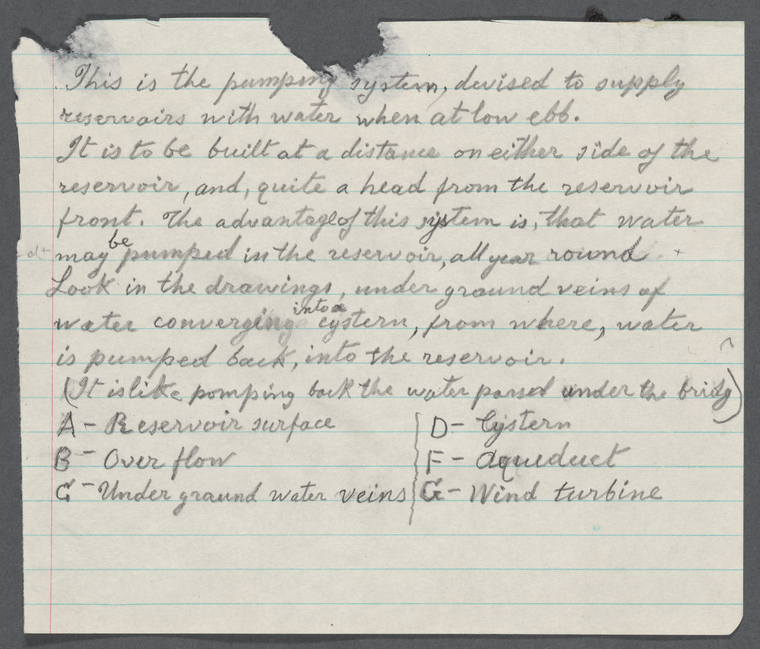 This is the pumping system, devised to supply
reservoirs with water when at low ebb.
It is to be built at a distance on either side of the
reservoir, and, quite a head from the reservoir
front. The advantage of this system is, that water
may be pumped in the reservoir, all year round.
Look in the drawings, under ground veins of
water converging into a cystern, from where, water
is pumped back, into the reservoir.
(It is like pomping back the water parsed under the bridg)
A - Reservoir surface
B - Over flow
C - Under graund water veins
D - Cystern
F - Aqueduct
G - Wind turbine